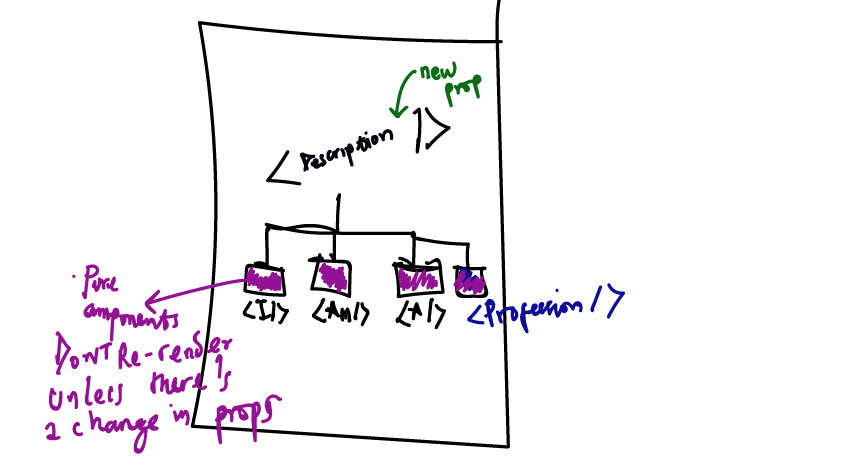 new
prop
<Description />
<I/> <Am/> <A/> <Profession />
. Pure
components
DONT Re-render
unless there is
a change in props